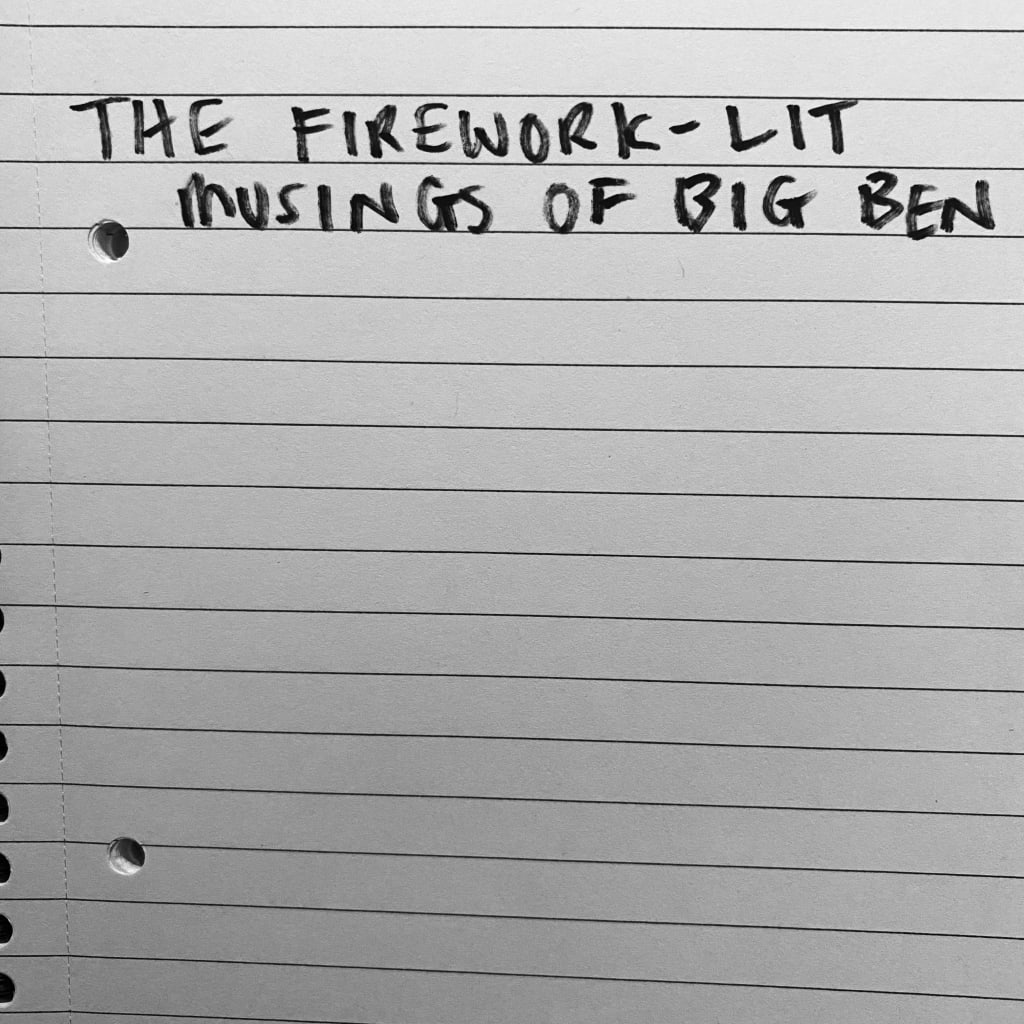 THE FIREWORK-LIT
MUSINGS OF BIG BEN